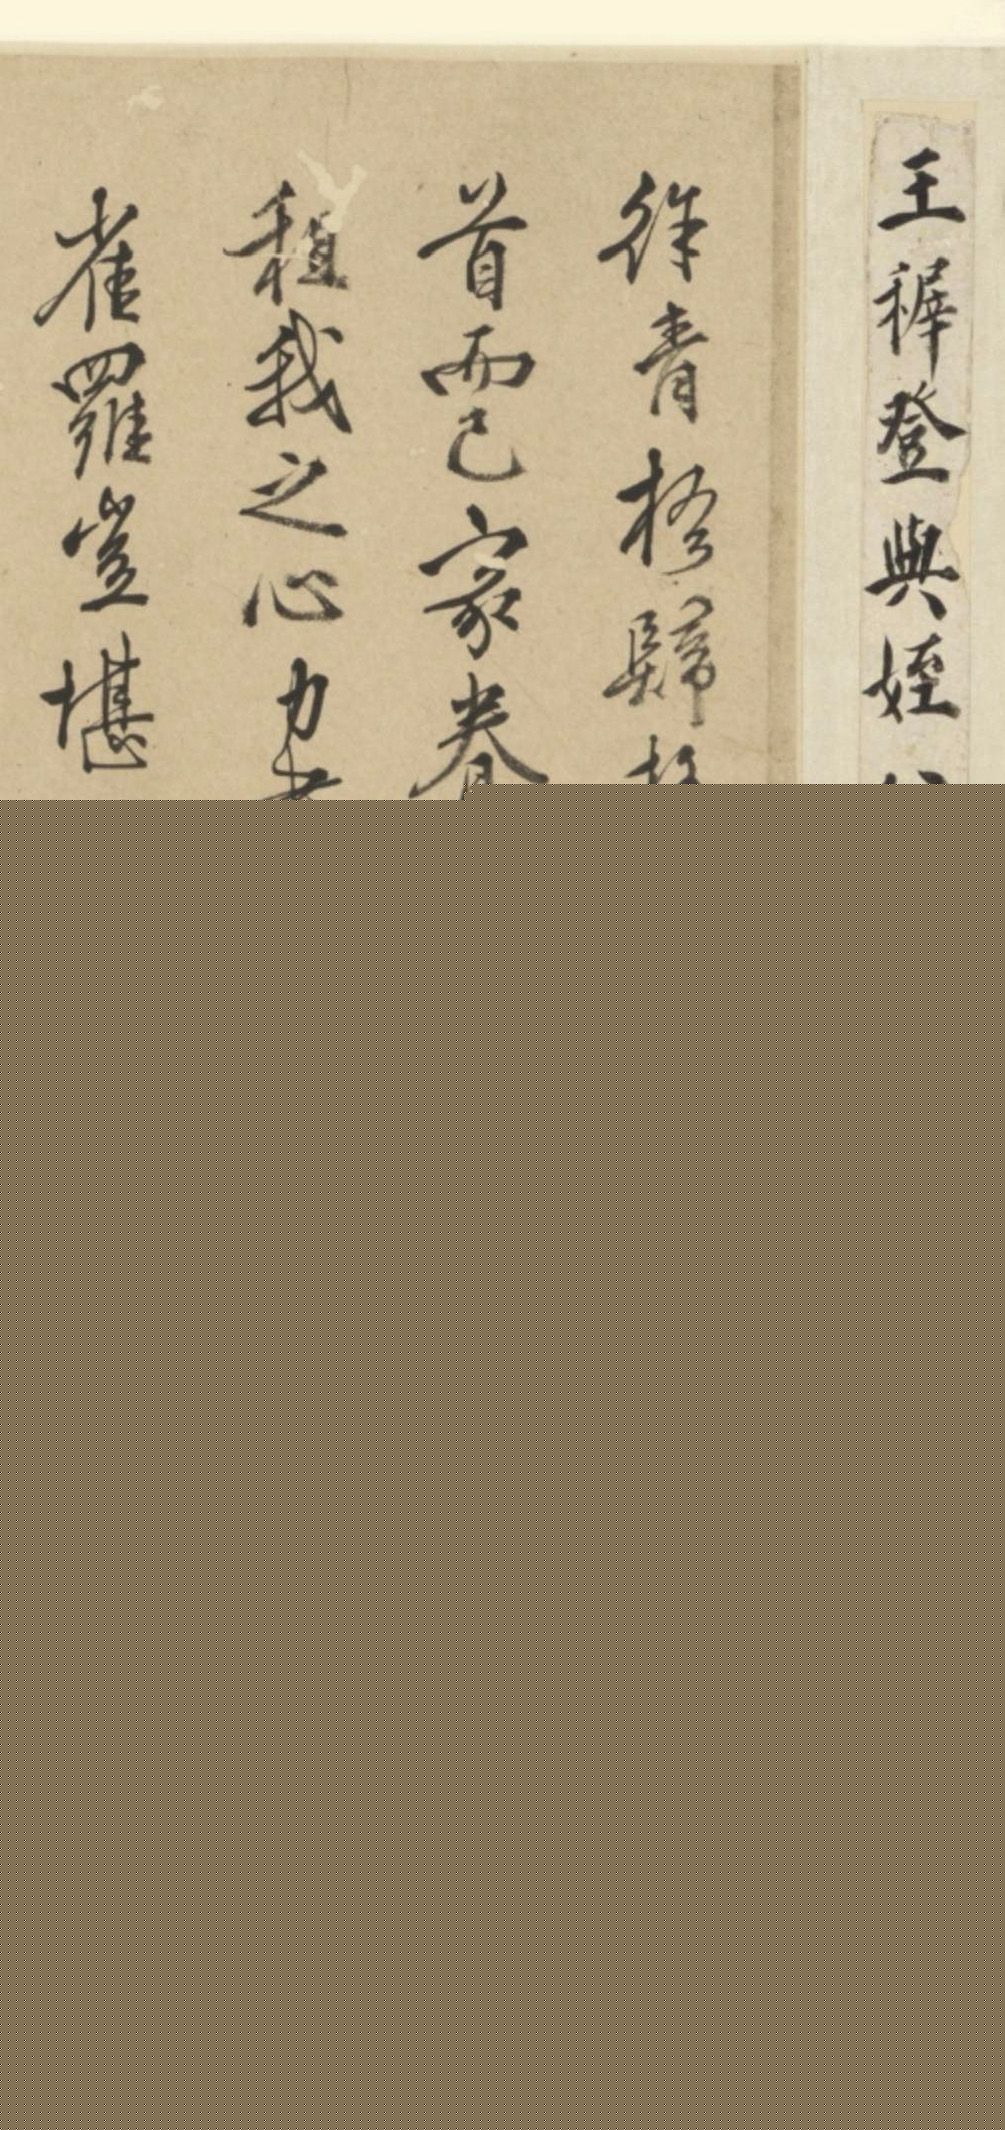 王穉登與姪
徐青梧歸
首而已家眷
植我之心力
雀羅豈堪